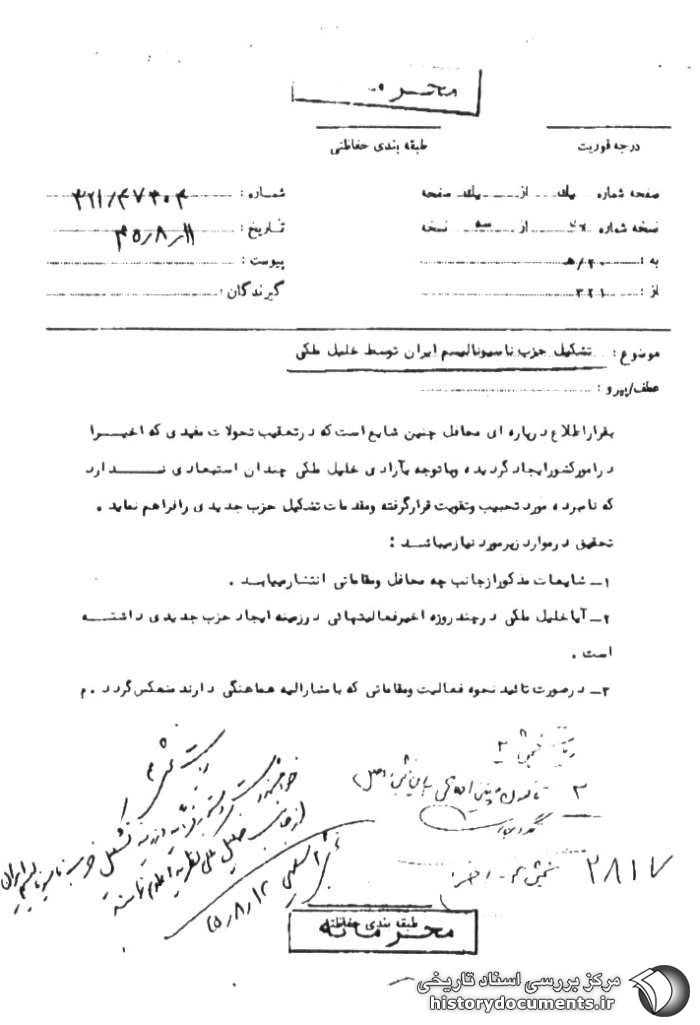 محرمانه
درجه فوریت
طبقه بندی حفاظتی
صفحه شماره یک از یک صفحه
شماره : ۳۲۱/۴۷۳۰۴
نسخه شماره از نسخه
تاریخ : ۴۵/۸/۱۱
به : ۲۰/ﻫ
پیوست :
از : ۳۲۱
گیرندگان :
موضوع : تشکیل حزب ناسیونالیسم ایران توسط خلیل ملکی
عطف/پیرو :
بقرار اطلاع در پاره ای محافل چنین شایع است که در تعقیب تحولات مفیدی که اخیرا
در امور کشور ایجاد گردیده و با توجه بآزادی خلیل ملکی چندان استبعادی ندارد
که نامبرده مورد تحبیب و تقویت قرار گرفته و مقدمات تشکیل حزب جدیدی را فراهم نماید .
تحقیق در موارد زیر مورد نیاز میباشد :
۱ـ شایعات مذکور از جانب چه محافل و مقاماتی انتشار میابد .
۲ـ آیا خلیل ملکی در چند روزه اخیر فعالیتهائی در زمینه ایجاد حزب جدیدی داشته
است .
۳ـ در صورت تائید نحوه فعالیت و مقاماتی که با مشارالیه هماهنگی دارند منعکس گردد . م
ریاست بخش ۲
خواهشمند است دستور فرمائید در زمینه تشکیل حزب ناسیونالیسم ایران
از جانب خلیل ملکی نظریه اعلام نمایند
۴۵/۸/۱۲
۲۸۱۷
طبقه بندی حفاظتی
محرمانه
مرکز بررسی اسناد تاریخی
historydocuments.ir